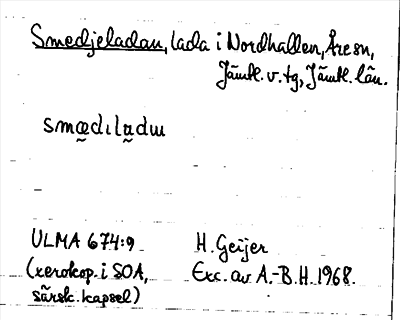 Smedjeladan, lada i Nordhallen, Åresn,
Jämtl. v. tg, Jämtl. län.
smæ̰dɩla̰dɯ
ULMA 674:9 H. Geijer
(xerokop. i SOA, Exc. av A.-B.H. 1968.
särsk. kapsel)